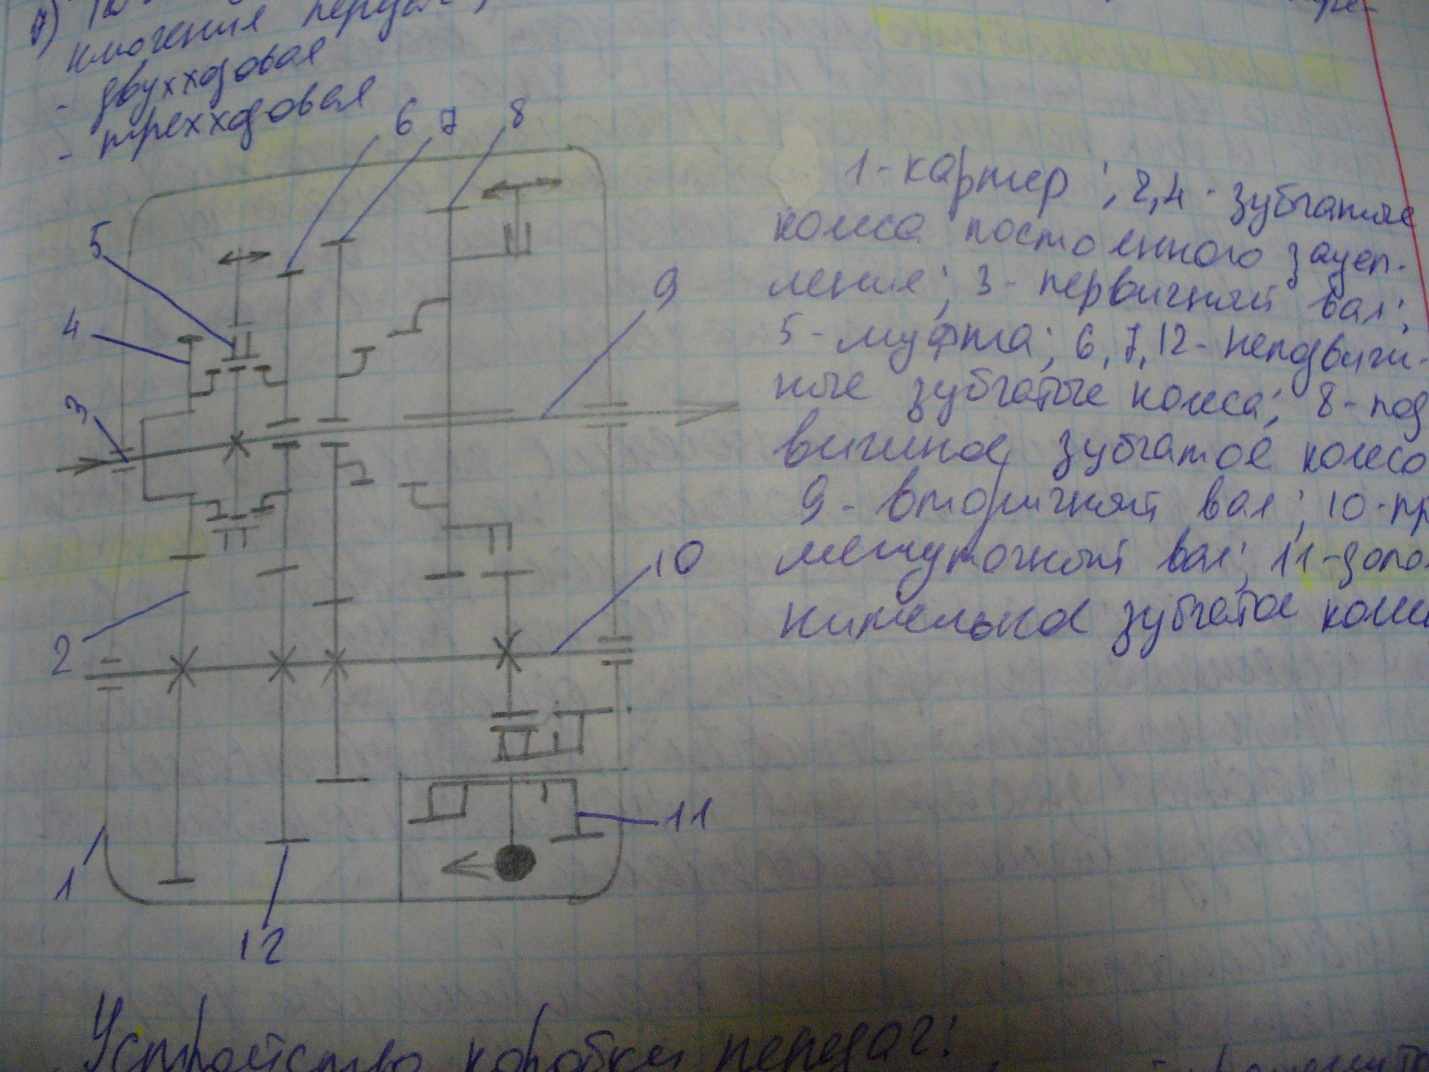 7)
ключения передач,
- двухходовая
- трехходовая
6 7 8
5
4
3
9
2
10
1
11
12
1-картер ; 2,4-зубчатые
колеса постоянного зацеп-
ления; 3-первичный вал;
5-муфта; 6,7,12-неподвиж-
ные зубчатые колеса; 8-под
вижное зубчатое колесо
9-вторичный вал; 10-пр
межуточный вал; 11-допо
нительное зубчатое коле
Устройство коробки передач: